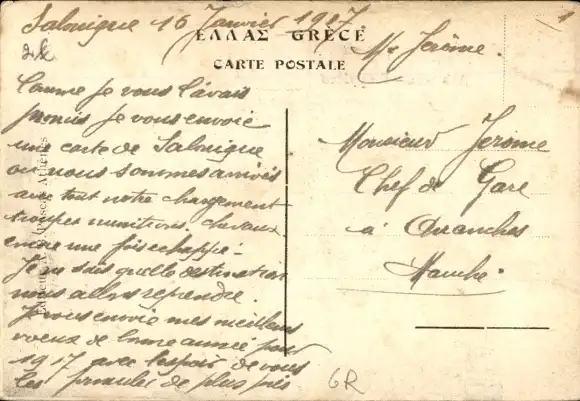 Salonique 16 Janvier 1917.
ΕΛΛΑΣ GRÈCE
Mr Jérôme.
CARTE POSTALE
Comme je vous l'avais
promis je vous envoie
une carte de Salonique
ou nous sommes arrivés
avec tout notre chargement
troupes munitions, chevaux,
encore une fois échappé.
Je ne sais quelle destination
nous allons reprendre.
Je vous envoie mes meilleurs
voeux de bonne année pour
1917 avec l'espoir de vous
les de plus près
Monsieur Jérôme
Chef de Gare
à Avranches
Manche.
GR
1